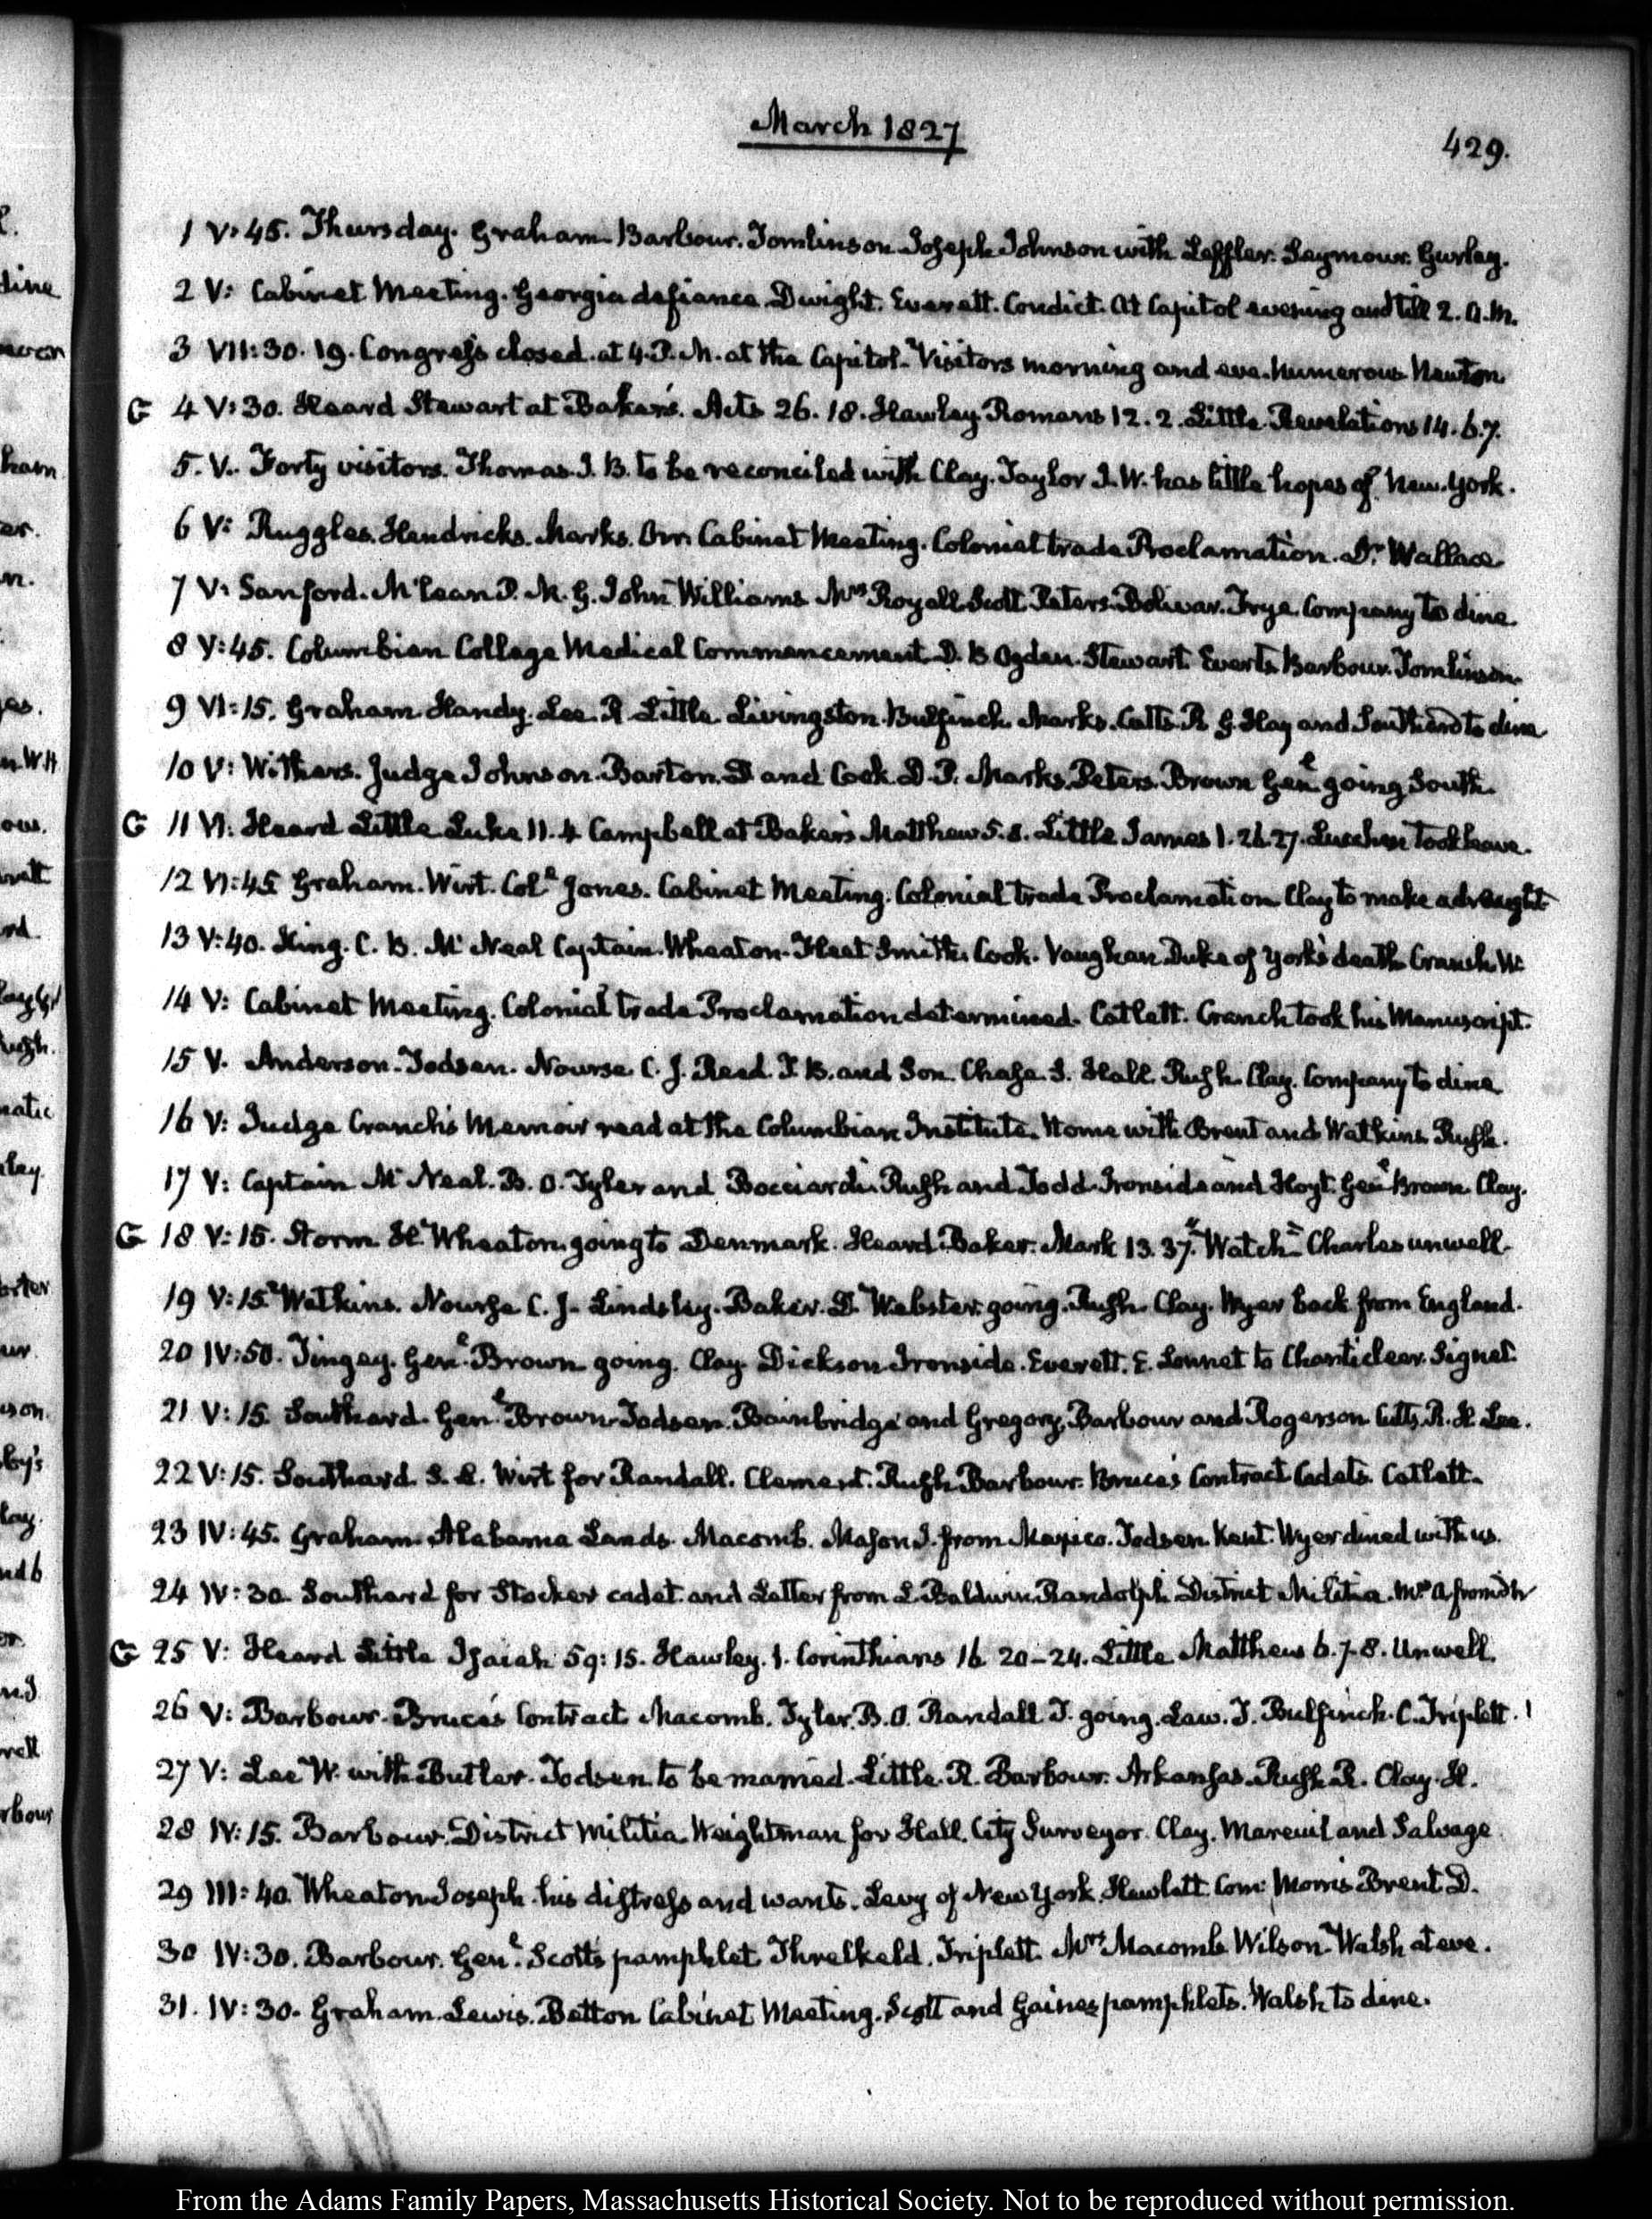 March 1827
429.
1 V:45. Thursday. Graham. Barbour. Tomlinson Joseph Johnson with Leffler. Seymour. Gurley.
2 V: Cabinet Meeting. Georgia defiance Dwight. Everett. Condict. At Capitol evening and till 2. A.M.
3 VII:30. 19. Congress closed. at 4. P. M. at the Capitol. Visitors morning and eve. numerous Newton
G 4 V:30. Heard Stewart at Baker's. Acts 26. 18. Hawley Romans 12. 2. Little. Revelations 14. 6.7.
5. V. Forty visitors. Thomas J. B. to be reconciled with Clay. Taylor J. W. has little hopes of New York.
6 V: Ruggles. Hendricks. Marks. Orr. Cabinet Meeting. Colonial trade Proclamation. Dr. Wallace
7 V: Sanford. McLean P. M. G. John Williams Mrs Royall Scott Peters. Bolivar. Frye. Company to dine.
8 V:45. Columbian College Medical Commencement. D. B. Ogden. Stewart. Everts Barbour. Tomlinson.
9 VI:15. Graham Handy. Lee. R. Little. Livingston. Bulfinch. Marks. Cutts. R. G. Hay and Southard to dine
10 V: Withers. Judge Johnson. Barton. D and Cook. D. P. Marks. Peters. Brown Genl going South.
G 11 VI: Heard Little Luke 11. 4 Campbell at Baker's Matthew 5. 8. Little James 1. 26.27. took leave.
12 VI:45 Graham. Wirt. Coll Jones. Cabinet Meeting. Colonial trade Proclamation Clay to make a draught
13 V:40. King. C. B. Mc Neal Captain. Wheaton. Fleet Smith. Cook. Vaughan Duke of York's death Cranch W.
14 V: Cabinet Meeting. Colonial trade Proclamation determined. Catlett. Cranch took his Manuscript.
15 V. Anderson. Todsen. Nourse C. J. Reed. J. B. and Son. Chase. S. Hall. Rush. Clay. Company to dine
16 V: Judge Cranch's Memoir read at the Columbian Institute. Home with Brent and Watkins Rush.
17 V: Captain Mc Neal. B. O. Tyler and Bocciardi. Rush and Todd. Ironside and Hoyt. Genl Brown. Clay.
G 18 V:15. Storm. H. Wheaton going to Denmark. Heard. Baker. Mark 13. 37. "Watch" Charles unwell.
19 V:15. Watkins. Nourse C. J. Lindsley. Baker. D. Webster. going. Rush. Clay. Wyer back from England.
20 IV:50. Tingey. Genl Brown going. Clay Dickson Ironside. Everett. E. Sonnet to Chanticleer. Signet.
21 V:15 Southard. Genl Brown. Todsen. Bainbridge and Gregory, Barbour and Rogerson Cutts. R. H. Lee.
22 V:15. Southard S. L. Wirt for Randall. Clement. Rush Barbour. Bruce's Contract Cadets. Catlett.
23 IV:45. Graham. Alabama Lands. Macomb. Mason J. from Mexico. Todsen Kent. Wyer dined with us.
24 IV:30 Southard for Stocker cadet and Letter from L. Baldwin. Randolph District Militia.
G 25 V: Heard Little Isaiah 59:15. Hawley. 1. Corinthians 16 20-24. Little Matthew 6. 7.8. Unwell.
26 V: Barbour. Bruce's Contract Macomb. Tyler. B. O. Randall T. going. Law. T. Bulfinch. C. Triplett.
27 V: Lee W. with Butler. Todsen to be married. Little. R. Barbour. Arkansas. Rush R. Clay. H.
28 IV:15. Barbour. District Militia Weightman for Hall. City Surveyor. Clay. Mareuil and Salvage
29 III:40. Wheaton Joseph. his distress and wants. Levy of New York. Hewlett. Com: Morris Brent D.
30 IV:30. Barbour. Genl. Scott's pamphlet Threlkeld. Triplett. Mrs Macomb Wilson. Walsh at eve.
31. IV:30. Graham. Lewis. Betton Cabinet Meeting. Scott and Gaines pamphlets. Walsh to dine.
From the Adams Family Papers, Massachusetts Historical Society. Not to be reproduced without permission.